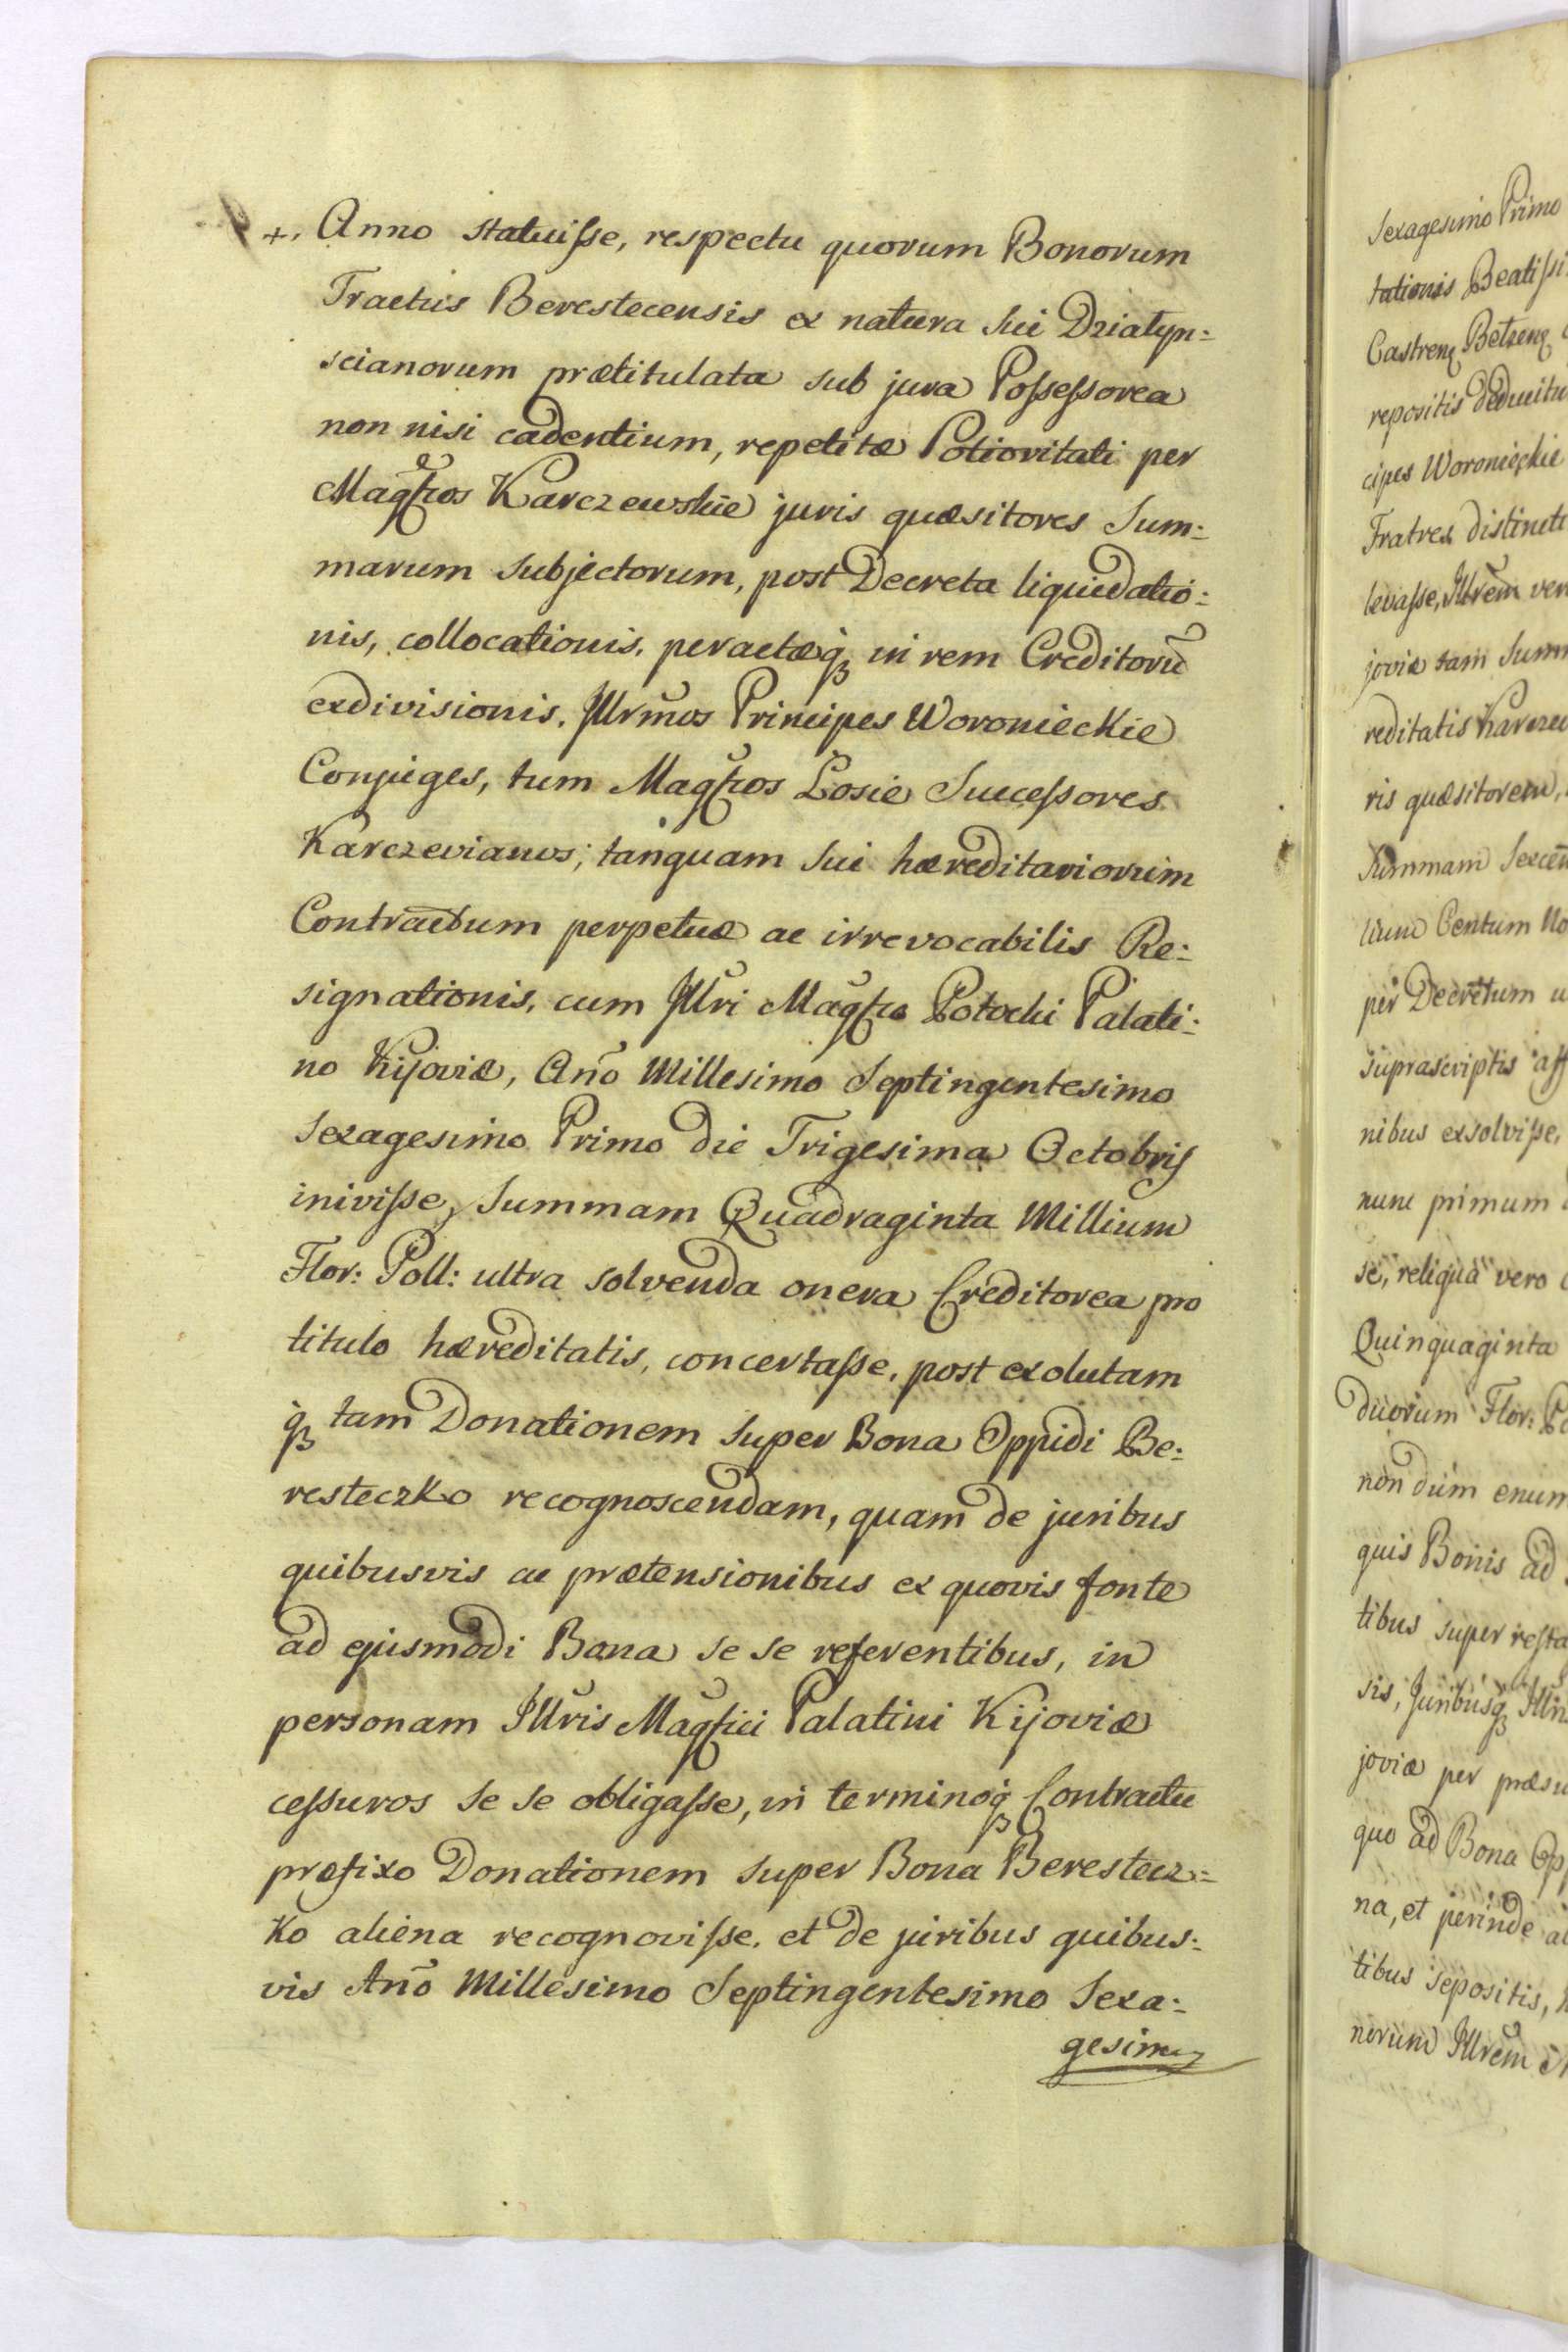 +. Anno statuisse, respectu quorum Bonorum
Tractus Berestecensis ex natura sui Dziatyn:
scianorum prætitulata sub jura Possessorea
non nisi cadentium, repetitæ Potioritati per
Magfcos Karczewskie juris quæsitores Sum:
marum subjectorum, post Decreta liquidatio:
nis, collocationis, peractæq₃ in rem Creditorũ
exdivisionis, Jllrmos Principes Woronieckie
Conjuges, tum Magfcos Łosie Successores
Karczevianos; tanquam sui hæreditariorum
Contractum perpetuæ ac irrevocabilis Re:
signationis, cum Jllri Magfco Potocki Palati:
no Kijoviæ, Año Millesimo Septingentesimo
Sexagesimo Primo die Trigesima Octobris
inivisse, Summam Quadraginta Millium
Flor: Poll: ultra solvenda onera Creditorea pro
titulo hæreditatis, concertasse, post exolutam
q₃ tam Donationem super Bona Oppidi Be:
resteczko recognoscendam, quam de juribus
quibusvis ac prætensionibus ex quovis fonte
ad ejusmodi Bona se se referentibus, in
personam Jllris Magfici Palatini Kijoviæ
cessuros se se obligasse, in terminoq₃ Contractu
præfixo Donationem super Bona Berestecz:
ko aliena recognovisse, et de juribus quibus:
vis Año Millesimo Septingentesimo Sexa:
gesimo
Sexagesimo Primo
tationis Beatissi
Castren Betzen
repositis deducitu
cipes Woronieckie
Fratres distincte
levasse, Jllrem ver
joviæ tam Summ
reditatis Karczew
ris quæsitorem,
Summam Sexcen
lium Centum No
per Decretum u
suprascriptis aff
nibus exsolvisse,
nunc primum
se, reliqua vero
Quinquaginta
duorum Flor: Po
non dum enum
quis Bonis ad
tibus super resta
sis, Juribusq₃ Jllri
joviæ per præsu
quo ad Bona Op
na, et perinde al
tibus sepositis,
norum Jllrem